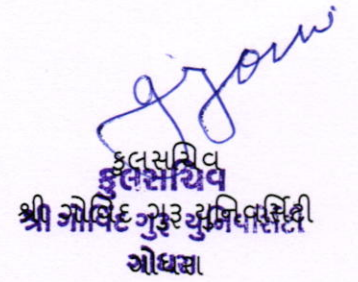 કુલસચિવ
કુલસચિવ
શ્રી ગોવિંદ ગુરૂ યુનિવર્સિટી
શ્રી ગોવિંદ ગુરુ યુનિવર્સિટી
ગોધરા
ગોધરા